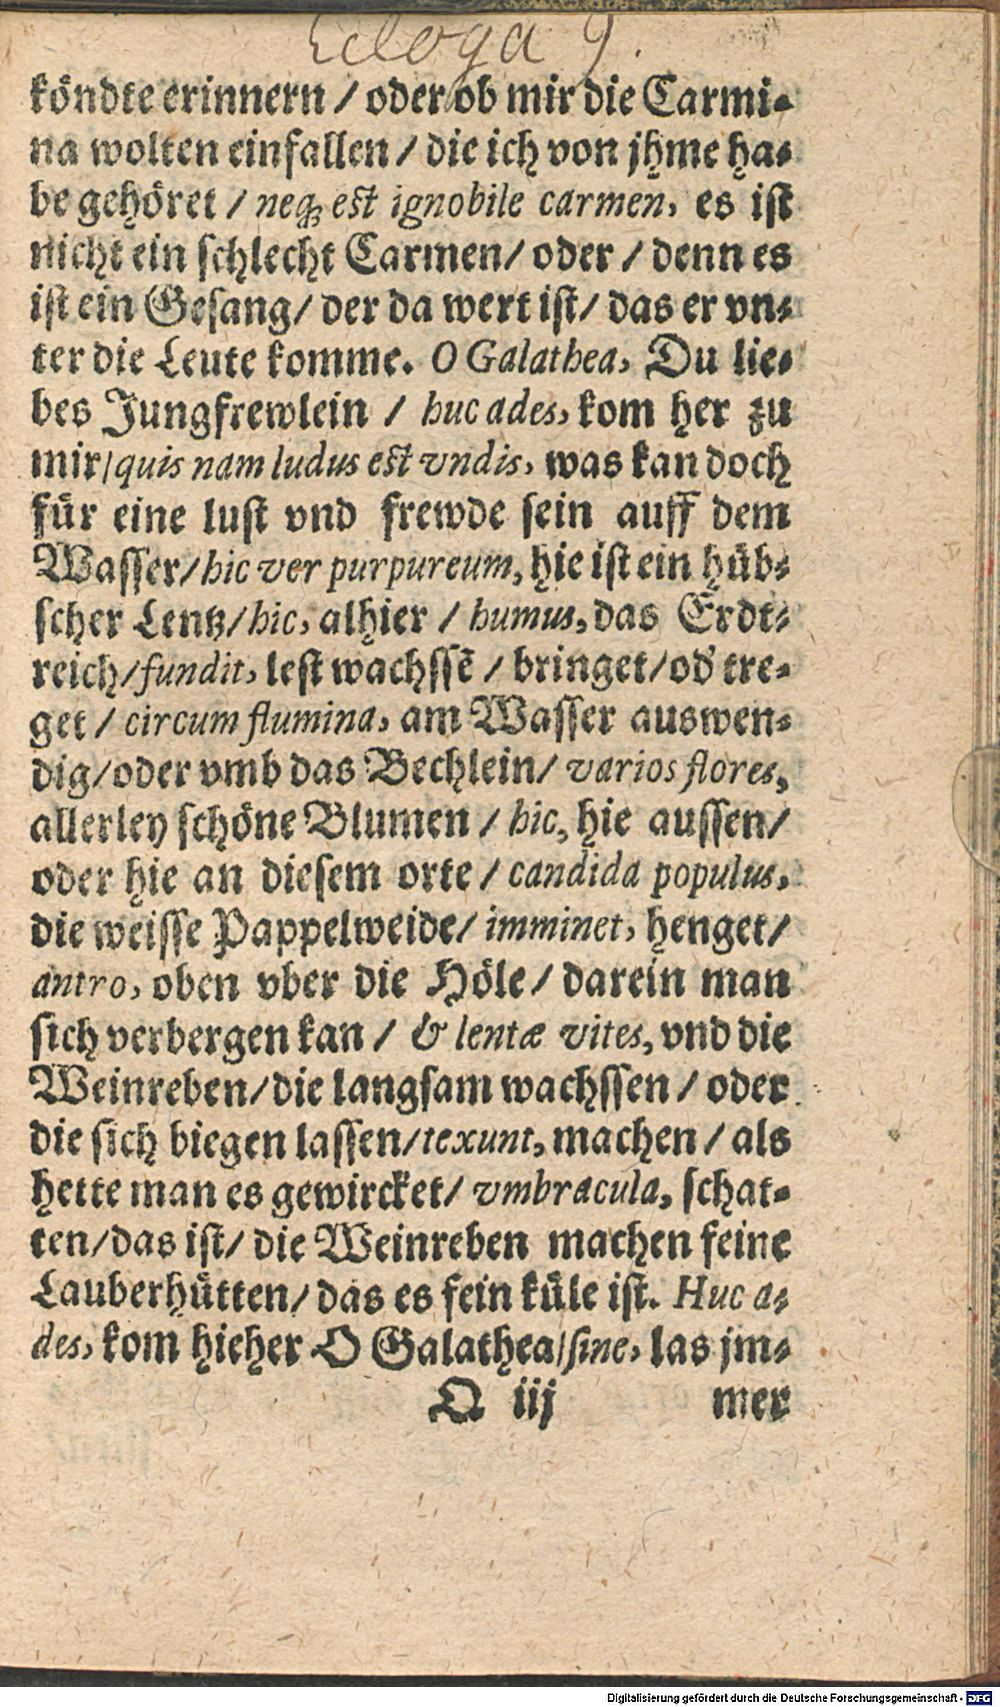 Ecloga 9.
köndte erinnern / oder ob mir die Carmi-
na wolten einfallen / die ich von jhme ha-
be gehöret / neq; est ignobile carmen, es ist
nicht ein schlecht Carmen / oder / denn es
ist ein Gesang / der da wert ist / das er vn-
ter die Leute komme. O Galathea, Du lie-
bes Jungfrewlein / huc ades, kom her zu
mir / quis nam ludus est vndis, was kan doch
für eine lust vnd frewde sein auff dem
Wasser / hic ver purpureum, hie ist ein hüb-
scher Lentz / hic, alhier / humus, das Erdt-
reich / fundit, lest wachssē / bringet / od' tre-
get / circum flumina, am Wasser auswen-
dig / oder vmb das Bechlein / varios flores,
allerley schöne Blumen / hic, hie aussen /
oder hie an diesem orte / candida populus,
die weisse Pappelweide / imminet, henget /
antro, oben vber die Höle / darein man
sich verbergen kan / & lentæ vites, vnd die
Weinreben / die langsam wachssen / oder
die sich biegen lassen / texunt, machen / als
hette man es gewircket / vmbracula, schat-
ten / das ist / die Weinreben machen feine
Lauberhütten / das es fein küle ist. Huc a-
des, kom hieher O Galathea / sine, las jm-
Q iij mer
Digitalisierung gefördert durch die Deutsche Forschungsgemeinschaft - DFG